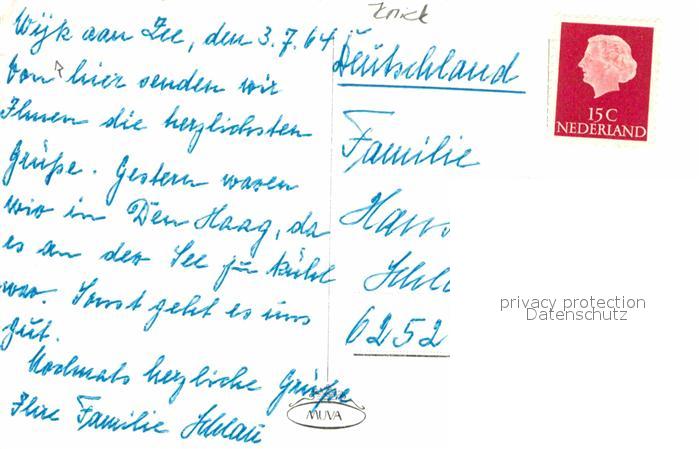 Knick
Wijk aan Zee, den 3.7.64
Von hier senden wir
Ihnen die herzlichsten
Grüße. Gestern waren
wir in Den Haag, da
es an der See zu kühl
war. Sonst geht es uns
gut.
Nochmals herzliche Grüße
Ihre Familie Schlau
Deutschland
Familie
Hans
Schl
6252
15 C
NEDERLAND
privacy protection
Datenschutz
MUVA